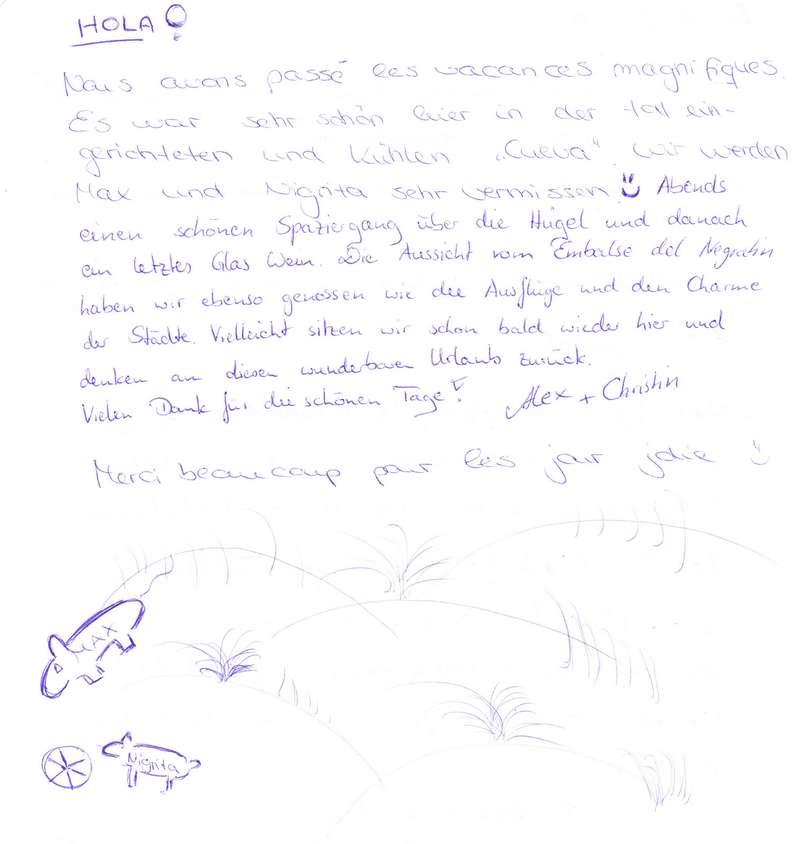 HOLA!
Nous avons passé les vacances magnifiques.
Es war sehr schön hier in der toll ein-
gerichteten und kühlen „Cueva“. Wir werden
Max und Nigrita sehr vermissen! Abends
einen schönen Spaziergang über die Hügel und danach
ein letztes Glas Wein. Die Aussicht vom Embalse del Negratin
haben wir ebenso genossen wie die Ausflüge und den Charme
der Städte. Vielleicht sitzen wir schon bald wieder hier und
denken an diesen wunderbaren Urlaub zurück.
Vielen Dank für die schönen Tage!
Alex + Christin
Merci beaucoup pour les jour jolie
MAX
Nigrita